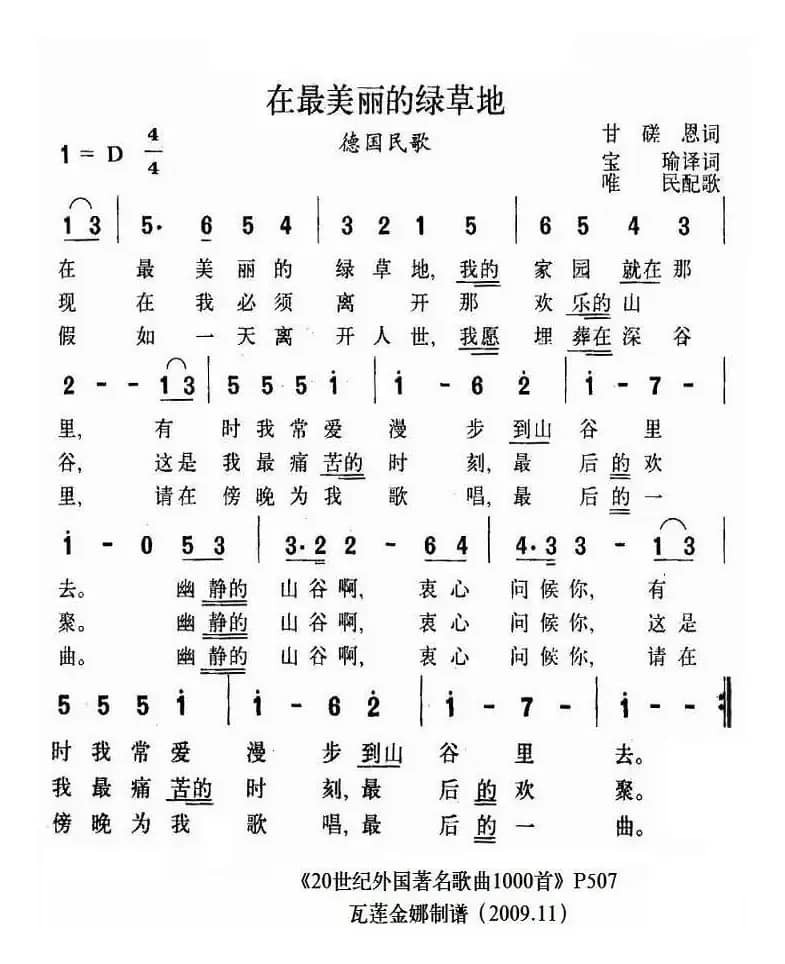 在最美丽的绿草地
德国民歌
1=D 4/4
甘磋恩词
宝瑜译词
唯民配歌
1 3 | 5· 6 5 4 | 3 2 1 5 | 6 5 4 3 |
在最美丽的绿草地,我的家园就在那
现在我必须离开那欢乐的山
假如一天离开人世,我愿埋葬在深谷
2 - - 1 3 | 5 5 5 i | i - 6 2̇ | i - 7 - |
里,有时我常爱漫步到山谷里
谷,这是我最痛苦的时刻,最后的欢
里,请在傍晚为我歌唱,最后的一
i - 0 5 3 | 3·2 2 - 6 4 | 4·3 3 - 1 3 |
去。幽静的山谷啊,衷心问候你,有
聚。幽静的山谷啊,衷心问候你,这是
曲。幽静的山谷啊,衷心问候你,请在
5 5 5 i | i - 6 2̇ | i - 7 - | i - - :‖
时我常爱漫步到山谷里去。
我最痛苦的时刻,最后的欢聚。
傍晚为我歌唱,最后的一曲。
《20世纪外国著名歌曲1000首》P507
瓦莲金娜制谱(2009.11)